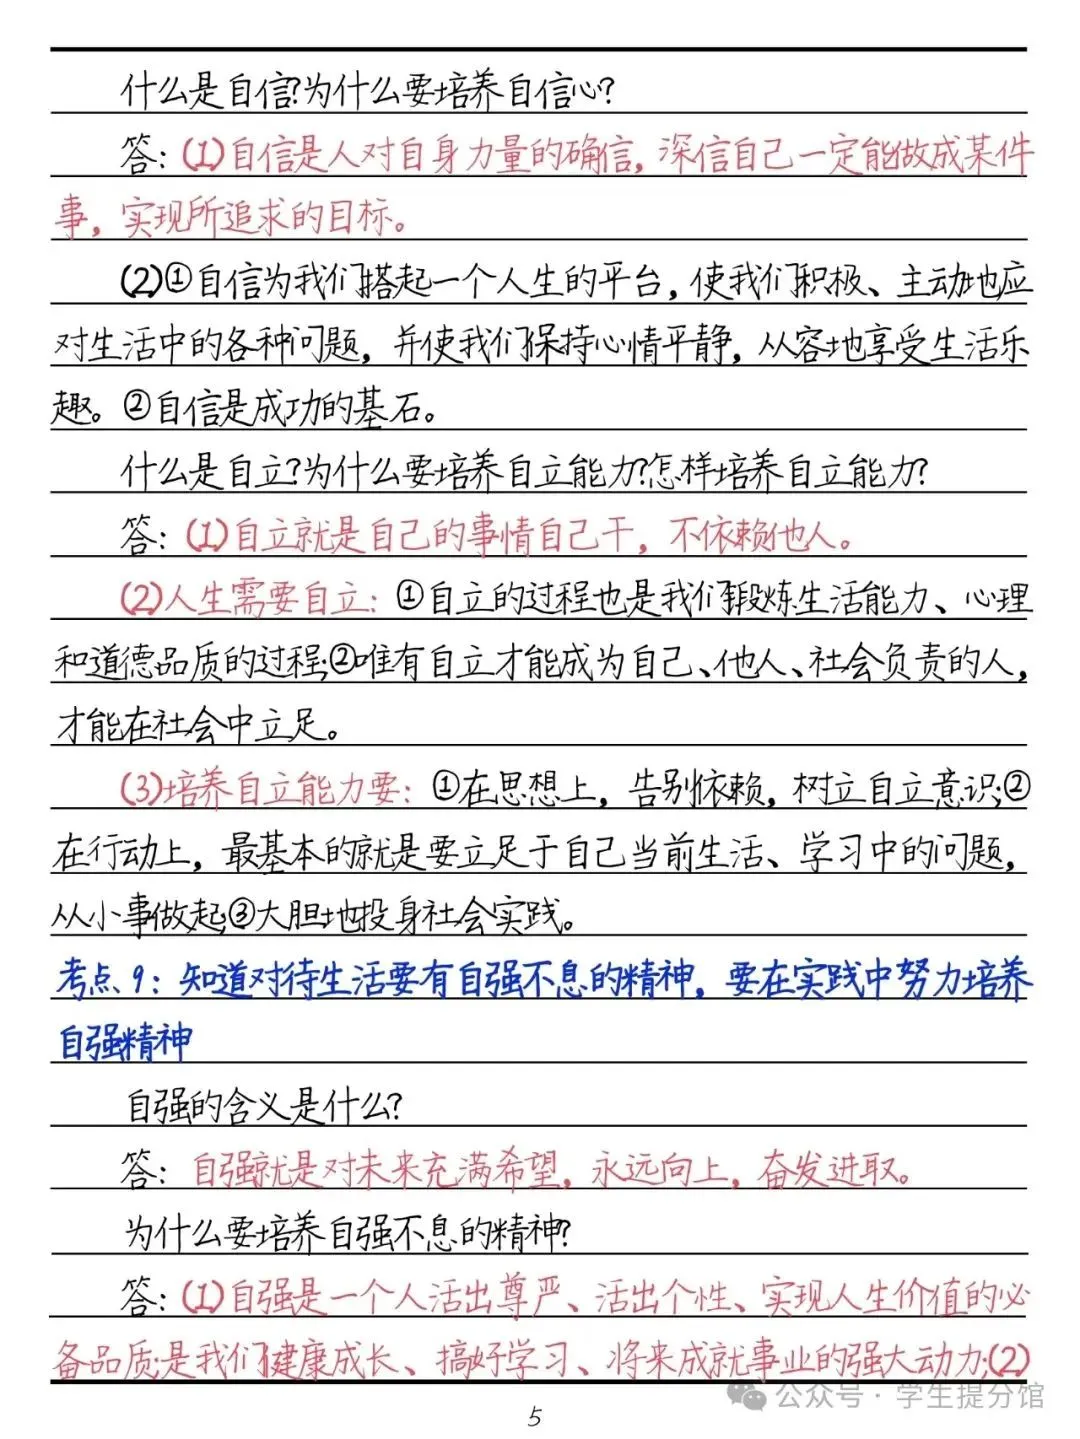 什么是自信?为什么要培养自信心?
答:(1)自信是人对自身力量的确信,深信自己一定能做成某件
事,实现所追求的目标。
(2)①自信为我们搭起一个人生的平台,使我们积极、主动地应
对生活中的各种问题,并使我们保持心情平静,从容地享受生活乐
趣。②自信是成功的基石。
什么是自立?为什么要培养自立能力?怎样培养自立能力?
答:(1)自立就是自己的事情自己干,不依赖他人。
(2)人生需要自立:①自立的过程也是我们锻炼生活能力、心理
和道德品质的过程;②唯有自立才能成为自己、他人、社会负责的人,
才能在社会中立足。
(3)培养自立能力要:①在思想上,告别依赖,树立自立意识;②
在行动上,最基本的就是要立足于自己当前生活、学习中的问题,
从小事做起;③大胆地投身社会实践。
考点、9:知道对待生活要有自强不息的精神,要在实践中努力培养
自强精神
自强的含义是什么?
答:自强就是对未来充满希望,永远向上,奋发进取。
为什么要培养自强不息的精神?
答:(1)自强是一个人活出尊严、活出个性、实现人生价值的必
备品质;是我们健康成长、搞好学习、将来成就事业的强大动力;(2)
公众号·学生提分馆
5